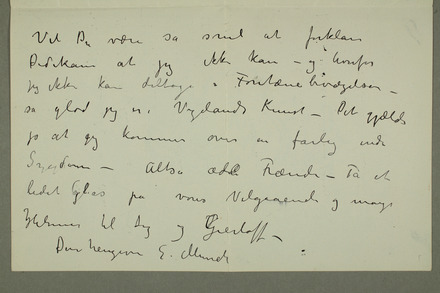 Vil Du være så snil at forklare
Dedekam at jeg ikke kan – og hvorfor
jeg ikke kan deltage i Fontænebevægelsen –
så glad jeg er i Vigelands Kunst – Det gjælder
jo at jeg kommer over en farlig
Sygdom – Altså ædle Frænde – Ta et
lidet Glas på vores Velgaaende og mange
Hilsener til Dig og Gierløff –
Din hengivne E. Munch